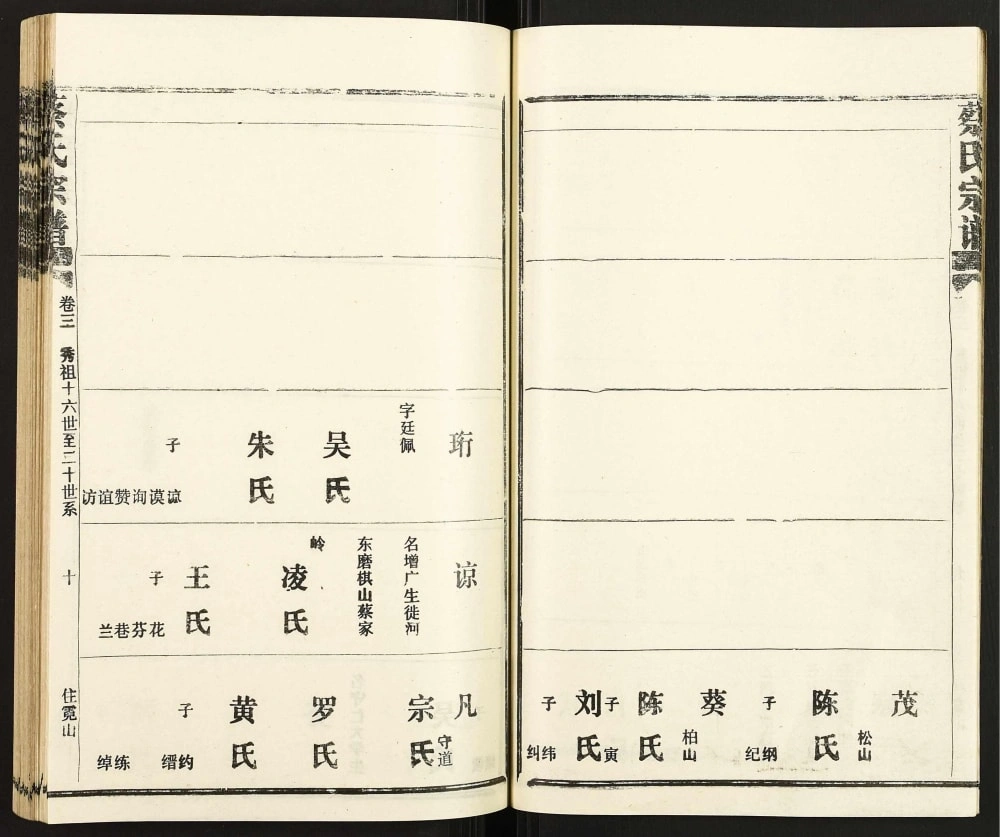 蔡氏宗谱
茂
松山
陈氏
子
纲
纪
葵
柏山
陈氏
子
寅
刘氏
子
纬
纠
珩
字廷佩
吴氏
朱氏
子
谅谟询赞谊访
谅
名增广生徙河
东磨棋山蔡家
岭
凌氏
王氏
子
花芬巷兰
凡
守道
宗氏
罗氏
黄氏
子
约缙
练绰
蔡氏宗谱
卷三
秀祖十六世至二十世系
十
住霓山